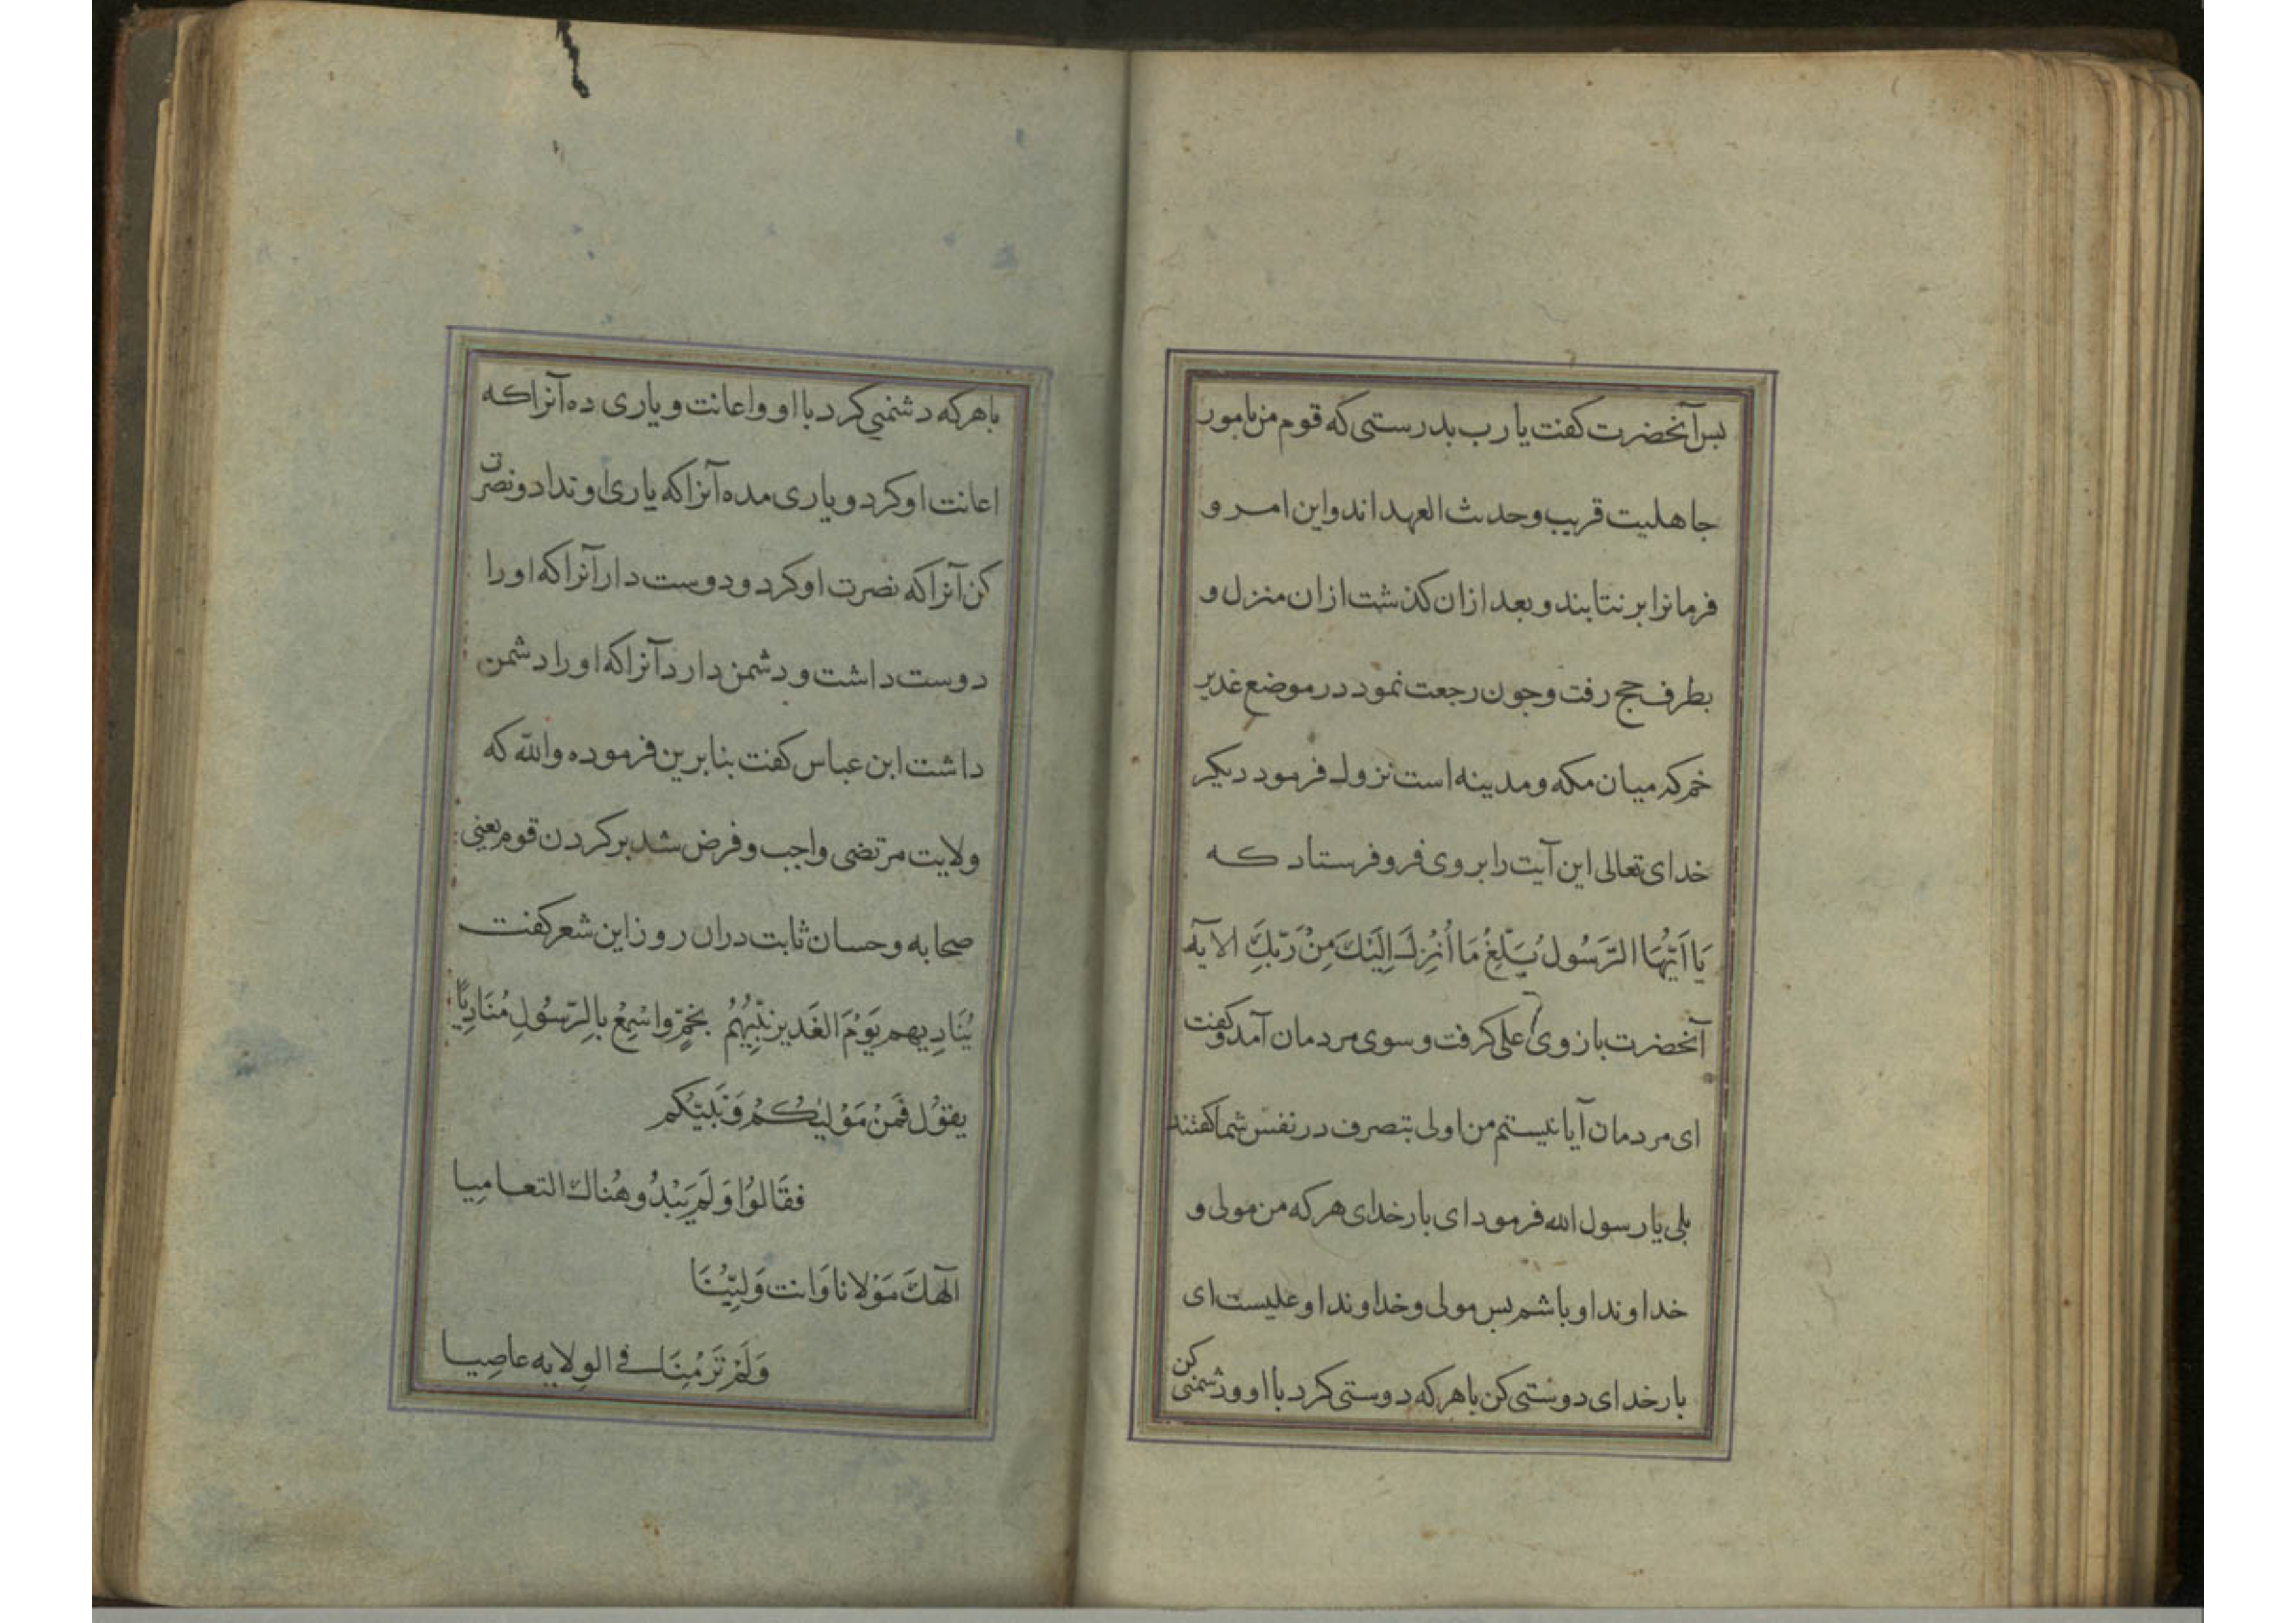 بس آنحضرت کفت یا رب بدرستی که قوم من بامور
جاهلیت قریب وحدث العهد اند واین امر و
فرمانرا بر نتابند و بعد ازان کذشت ازان منزل و
بطرف حج رفت وجون رجعت نمود در موضع غدیر
خم که میان مکه و مدینه است نزول فرمود دیکر
خدای تعالی این آیت را بر وی فرو فرستاد که
یَا اَیُّهَا الرَّسُول بَلِّغْ مَا اُنْزِلَ اِلَیْكَ مِنْ رَبِّكَ الایه
آنحضرت بازوی علی کرفت و سوی مردمان آمد و کفت
ای مردمان آیا نیستم من اولی بتصرف در نفس شما کفتند
بلی یا رسول الله فرمود ای بار خدای هرکه من مولی و
خداوند او باشم بس مولی و خداوند او علیست ای
بار خدای دوستی کن باهرکه دوستی کرد با او و دشمنی کن
باهرکه دشمنی کرد با او و اعانت و یاری ده آنراکه
اعانت او کرد و یاری مده آنراکه یاری او نداد و نصرت
کن آنراکه نصرت او کرد و دوست دار آنراکه او را
دوست داشت و دشمن دارد آنراکه او را دشمن
داشت ابن عباس کفت بنابرین فرموده والله که
ولایت مرتضی واجب و فرض شد بر کردن قوم یعنی
صحابه و حسان ثابت دران روز این شعر کفت
یُنَادِیهم یَوْمَ الغَدیر نَبِیُّهُمُ بخمٍّ واسْمِعْ بِالرَّسُولِ مُنَادِیًا
یقوُل فَمَنْ مَوْلیٰکُمْ وَنَبیّکم
فقَالوُا وَلَمْ یَبْدُو هُناكَ التعامِیا
اِلٰهكَ مَوْلانا وَانت وَلیّنَا
وَلَمْ تَرَ مِنَّا فی الوِلایه عاصِیا